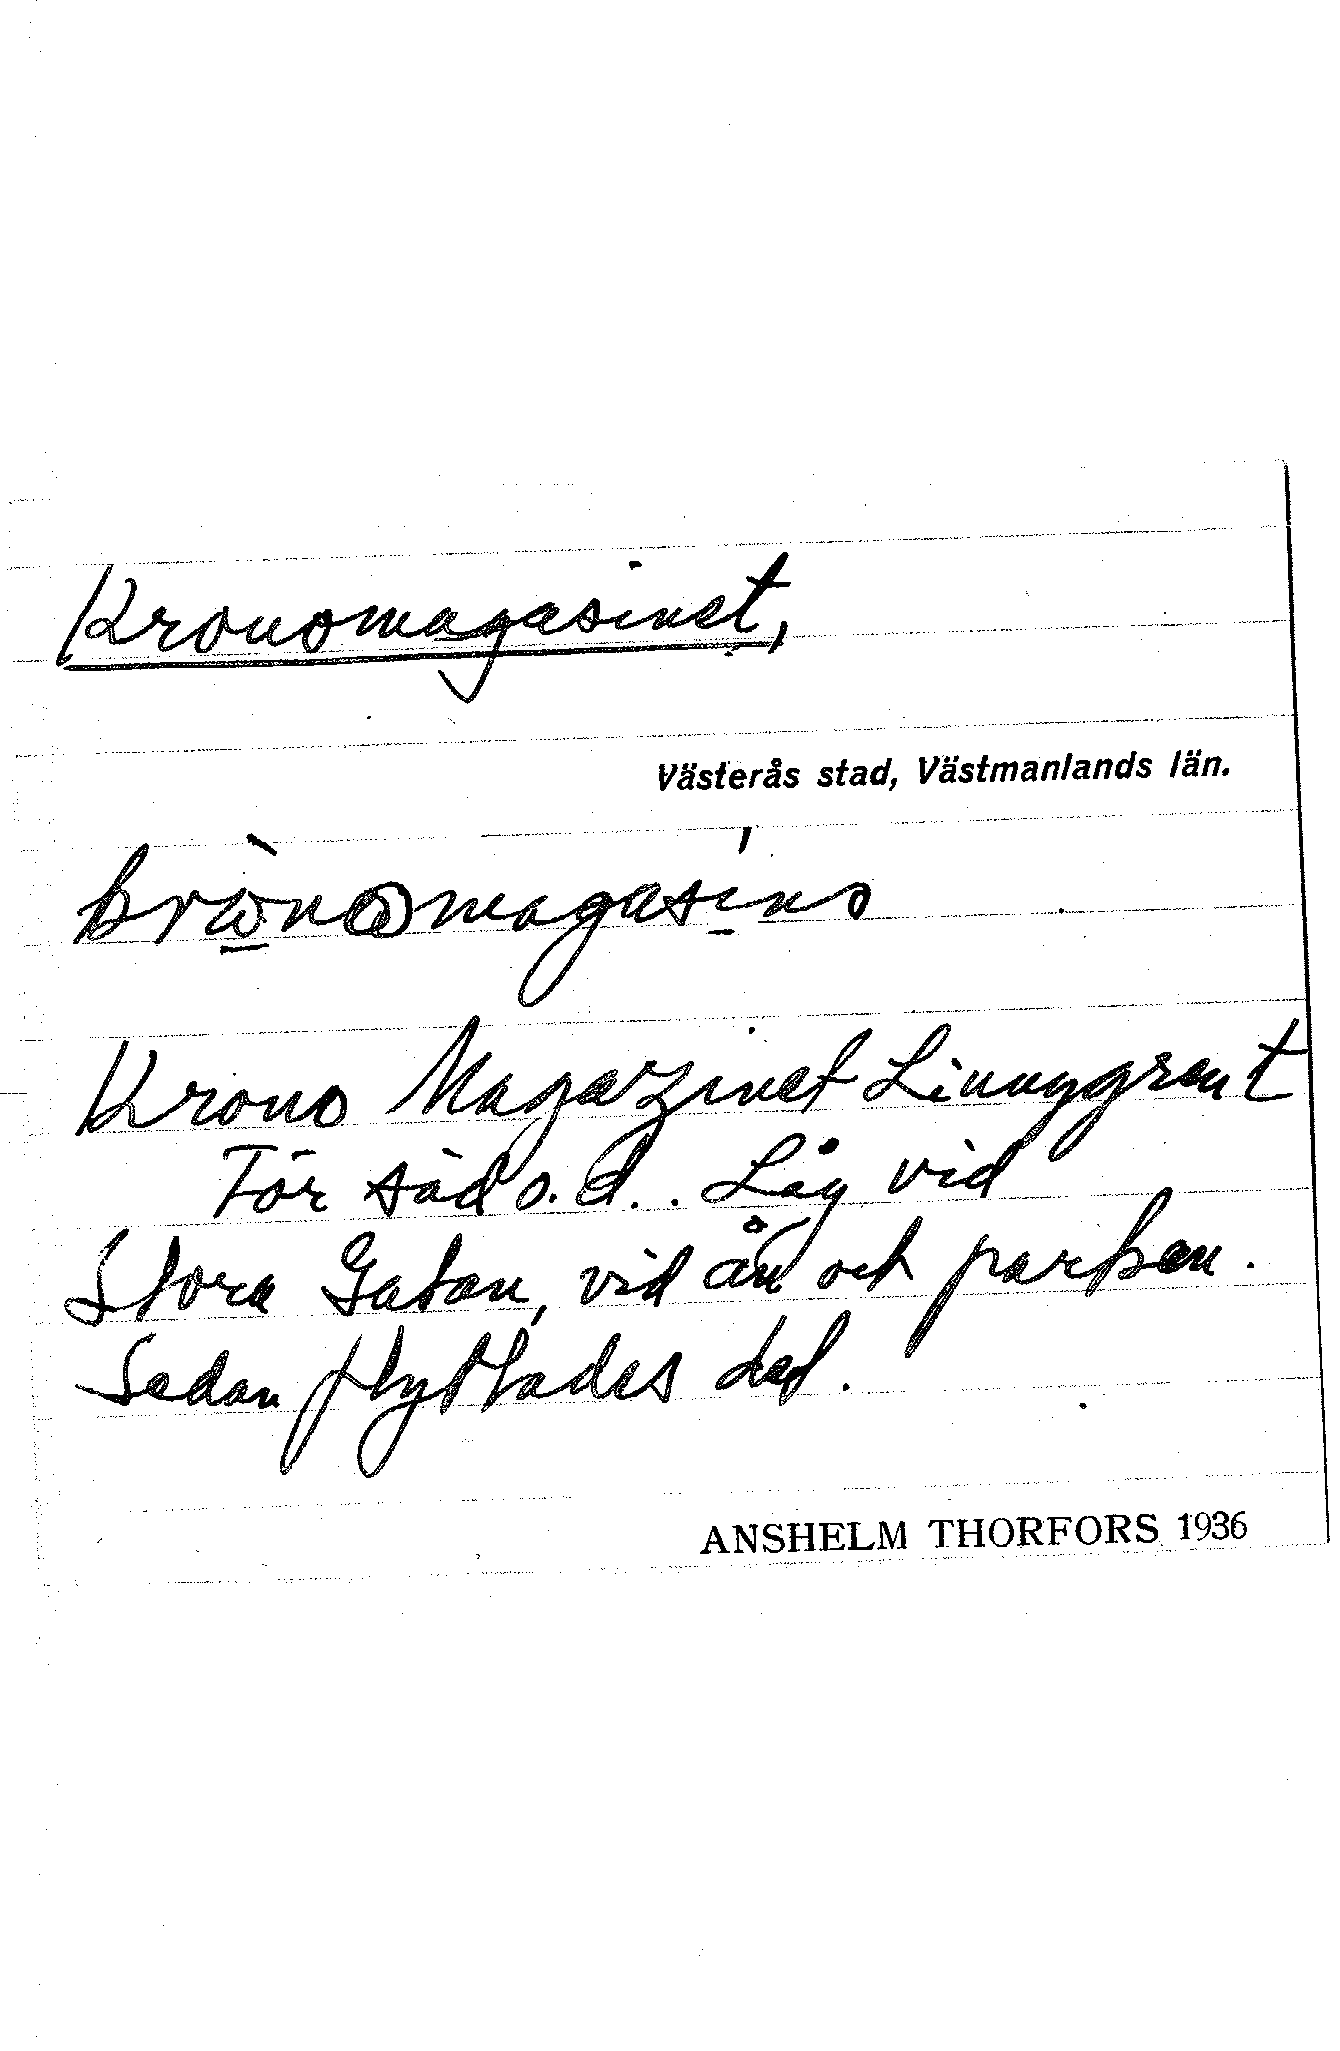 Kronomagasinet,
Västerås stad, Västmanlands län.
Krono Magazinet
För säd o. d.. Låg vid
Stora Gatan, vid ån och parken.
Sedan flyttades det.
ANSHELM THORFORS 1936